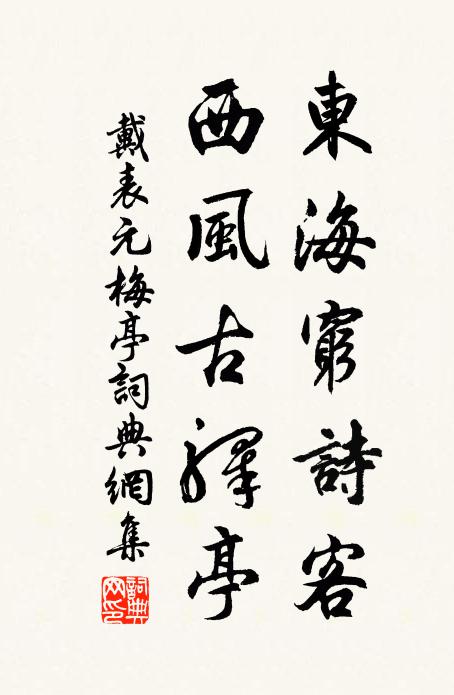 東海窮詩客
西風古驛亭
戴表元梅亭詞典網集
詞典網印